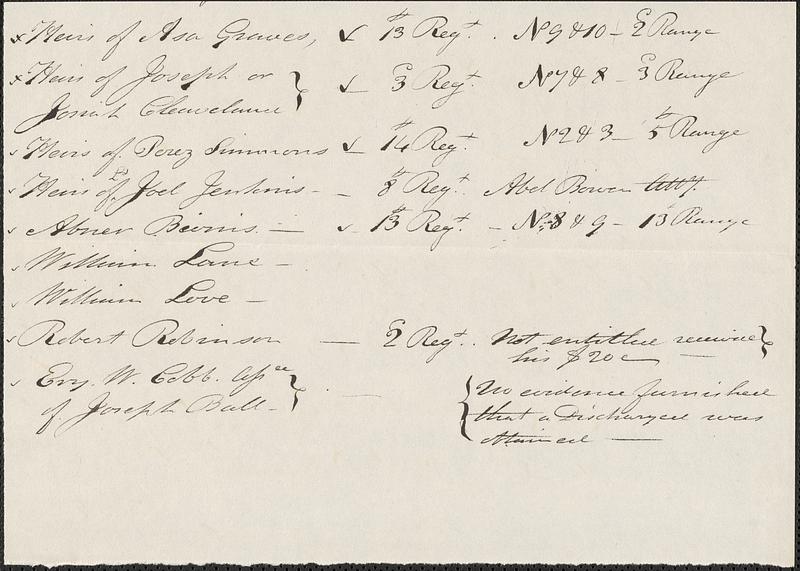 x Heirs of Asa Graves, ✓ 13th Regt. Nº 9 & 10 – 2d Range
x Heirs of Joseph or } ✓ 3d Regt. Nº 7 & 8 – 3d Range
Josiah Cleaveland
✓ Heirs of Perez Simmons ✓ 14th Regt. Nº 2 & 3 – 5th Range
✓ Heirs of Joel Jenkins – – 8th Regt. Abel Bowen Atty.
✓ Abner Bevins – ✓ 13th Regt – Nº 8 & 9 – 13th Range
✓ William Lane –
✓ William Love –
✓ Robert Robinson – 2d Regt. Not entitled receive }
his $20 –
✓ W. Cobb. Assee } – { No evidence furnished
of Joseph Ball – that a Discharged was
–